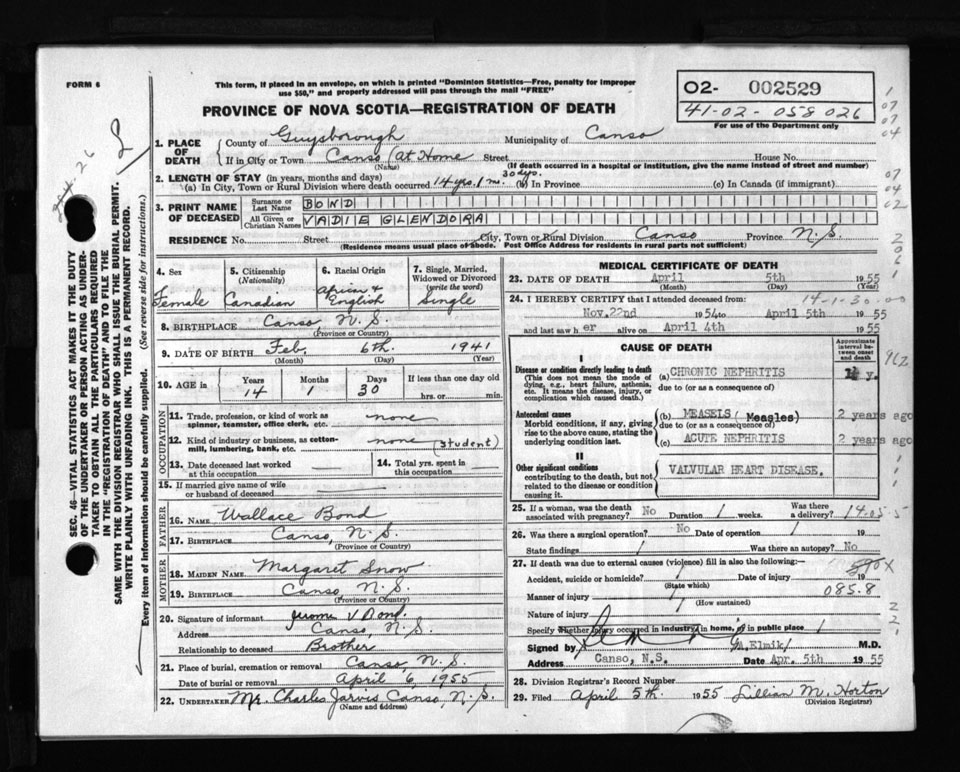 FORM 6
This form, if placed in an envelope, on which is printed "Dominion Statistics—Free, penalty for improper
use $50," and properly addressed will pass through the mail "FREE"
PROVINCE OF NOVA SCOTIA—REGISTRATION OF DEATH
O2- 002529
41-02-058026
For use of the Department only
SEC. 46—VITAL STATISTICS ACT MAKES IT THE DUTY
OF THE UNDERTAKER OR PERSON ACTING AS UNDER-
TAKER TO OBTAIN ALL THE PARTICULARS REQUIRED
IN THE "REGISTRATION OF DEATH" AND TO FILE THE
SAME WITH THE DIVISION REGISTRAR WHO SHALL ISSUE THE BURIAL PERMIT.
WRITE PLAINLY WITH UNFADING INK. THIS IS A PERMANENT RECORD.
Every item of information should be carefully supplied. (See reverse side for instructions.)
1. PLACE OF DEATH
County of Guysborough Municipality of Canso
If in City or Town Canso (at Home Street House No.
(Name) (If death occurred in a hospital or institution, give the name instead of street and number)
2. LENGTH OF STAY (in years, months and days)
(a) In City, Town or Rural Division where death occurred 14 yrs. 1 m. 30 dys. (b) In Province (c) In Canada (if immigrant)
3. PRINT NAME OF DECEASED
Surname or Last Name BOND
All Given or Christian Names VADIE GLENDORA
RESIDENCE No. Street City, Town or Rural Division Canso Province N.S.
(Residence means usual place of abode. Post Office Address for residents in rural parts not sufficient)
4. Sex
Female
5. Citizenship
(Nationality)
Canadian
6. Racial Origin
African &
English
7. Single, Married,
Widowed or Divorced
(write the word)
Single
8. BIRTHPLACE Canso, N.S.
(Province or Country)
9. DATE OF BIRTH Feb. 6th. 1941
(Month) (Day) (Year)
10. AGE in
Years Months Days If less than one day old
14 1 30 hrs. or min.
OCCUPATION
11. Trade, profession, or kind of work as
spinner, teamster, office clerk, etc. none
12. Kind of industry or business, as cotton-
mill, lumbering, bank, etc. none (student)
13. Date deceased last worked
at this occupation
14. Total yrs. spent in
this occupation
15. If married give name of wife
or husband of deceased
FATHER
16. NAME Wallace Bond
17. BIRTHPLACE Canso, N.S.
(Province or Country)
MOTHER
18. MAIDEN NAME Margaret Snow
19. BIRTHPLACE Canso, N.S.
(Province or Country)
20. Signature of informant
Address Canso, N.S.
Relationship to deceased Brother
21. Place of burial, cremation or removal Canso, N.S.
Date of burial or removal April 6, 1955
22. UNDERTAKER Mr. Charles Jarvis Canso, N.S.
(Name and Address)
MEDICAL CERTIFICATE OF DEATH
23. DATE OF DEATH April 5th 1955
(Month) (Day) (Year)
24. I HEREBY CERTIFY that I attended deceased from:
Nov. 22nd 1954 to April 5th 1955
and last saw her alive on April 4th 1955
CAUSE OF DEATH
Approximate
interval be-
tween onset
and death
I
Disease or condition directly leading to death
(This does not mean the mode of
dying, e.g., heart failure, asthenia,
etc. It means the disease, injury, or
complication which caused death.)
(a) CHRONIC NEPHRITIS
due to (or as a consequence of)
Antecedent causes
Morbid conditions, if any, giving
rise to the above cause, stating the
underlying condition last.
(b) MEASELS (Measles) 2 years ago
due to (or as a consequence of)
(c) ACUTE NEPHRITIS 2 years ago
II
Other significant conditions
contributing to the death, but not
related to the disease or condition
causing it.
VALVULAR HEART DISEASE.
25. If a woman, was the death
associated with pregnancy? No Duration / weeks. Was there
a delivery?
26. Was there a surgical operation? No Date of operation 19
State findings / Was there an autopsy? No
27. If death was due to external causes (violence) fill in also the following:—
Accident, suicide or homicide? / Date of injury 19
(State which)
Manner of injury
(How sustained)
085.8
Nature of injury
Specify whether injury occurred in industry, in home, or in public place
Signed by M.D.
Address Canso, N.S. Date Apr. 5th 1955
28. Division Registrar's Record Number
29. Filed April 5th. 1955 Lillian M. Horton
(Division Registrar)